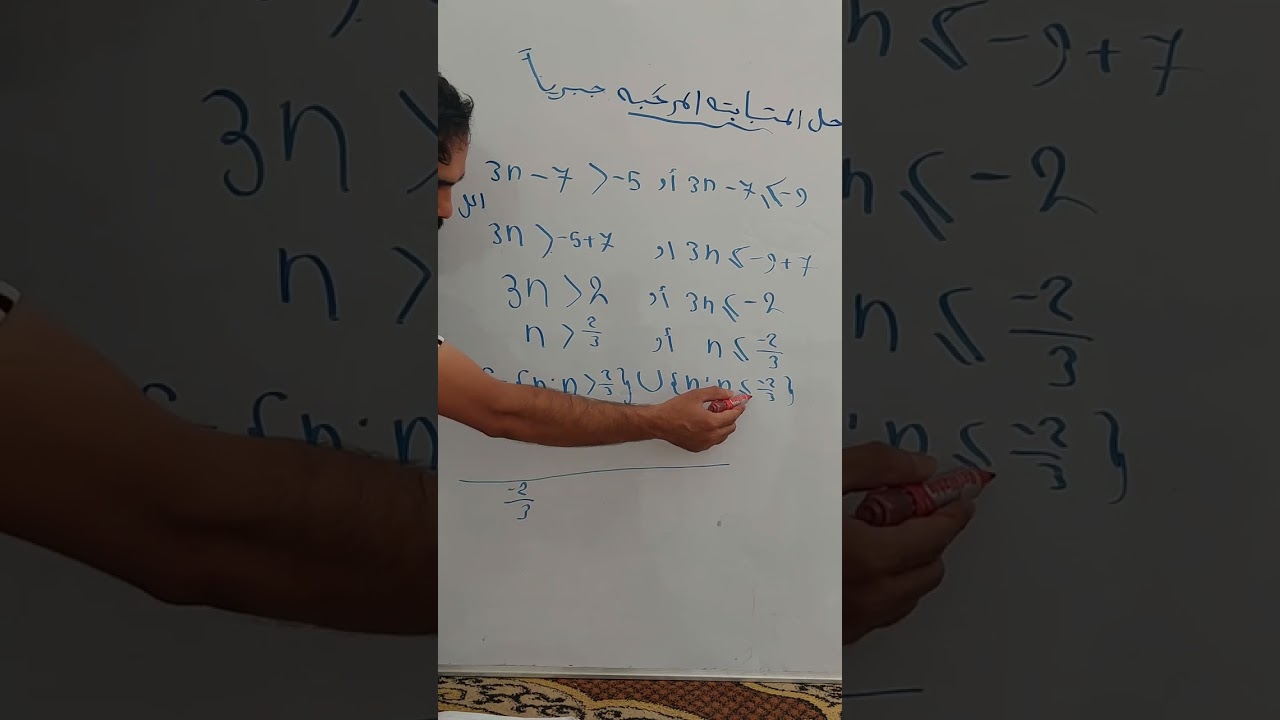 حل المتباينه المركبه جبرياً
3n - 7 > -5 أو 3n - 7 ≤ -9
الحل
3n > -5+7 او 3n ≤ -9+7
3n > 2 أو 3n ≤ -2
n > 2/3 أو n ≤ -2/3
{n:n > 2/3} ∪ {n:n ≤ -2/3}
-2/3